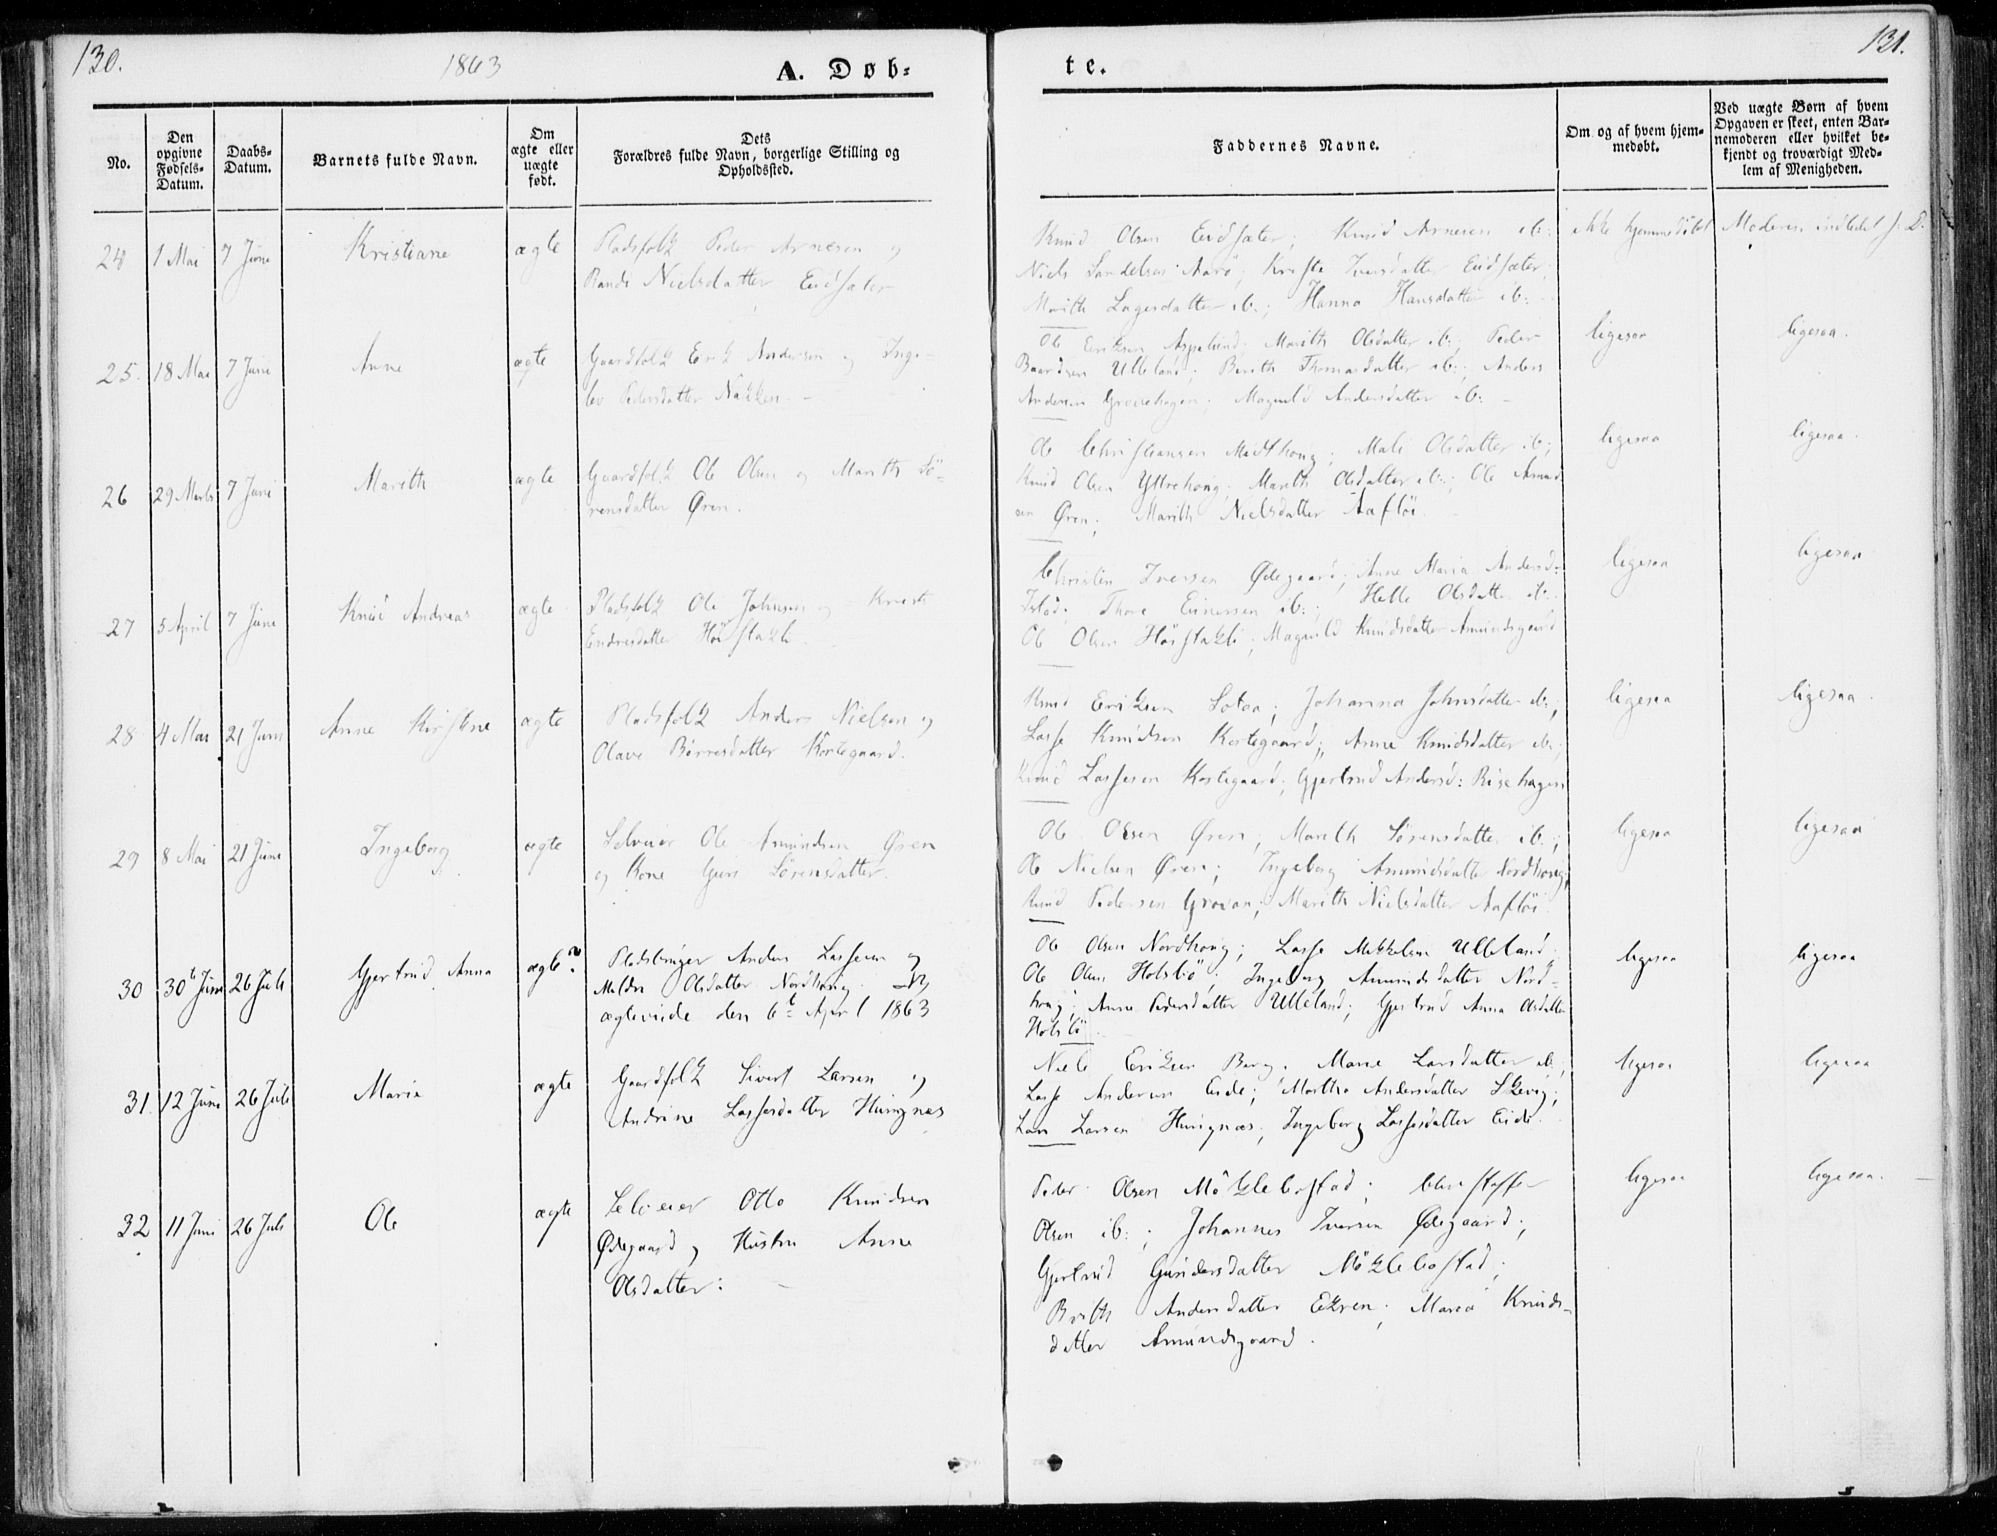 130.
1863
A. Døb-
te.
131.
No.
Den opgivne Fødsels-Datum.
Daabs-Datum.
Barnets fulde Navn.
Om ægte eller uægte født.
Dets Forældres fulde Navn, borgerlige Stilling og Opholdssted.
Faddernes Navne.
Om og af hvem hjem-medøbt.
Ved uægte Børn af hvem Opgaven er skeet, enten Bar-nemoderen eller hvilket be-kjendt og troværdigt Med-lem af Menigheden.
24 1 Mai 7 Juni Kristiane ægte Pladsfolk Peder Arnesen og
Randi Nielsdatter Eidsæter
Knud Olsen Eidsæter; Knud Arnesen ib:
Niels Aarø; Iversdatter Eidsæter;
Marith Lagesdatter ib:; Hanna Hansdatter ib:
ikke hjemmedøbt Moderen indledet
25. 18 Mai 7 Juni Anne ægte Gaardfolk Erik Andersen og Inge-
lev Pedersdatter Nakken.
Ole Eriksen Aspelund; Marith Olsdatter ib:; Peder
Baardsen Ulleland; Berith Thomasdatter ib:; Anders
Andersen Grovehagen; Magnild Andersdatter ib:
ligesaa ligesaa.
26 29 Marts 7 Juni Marith ægte Gaardfolk Ole Olsen og Marith Sö-
rensdatter Øren.
Ole Christiansen Midthoug; Mali Olsdatter ib:;
Knud Olsen Yttrehoug; Marith Olsdatter ib:; Ole Amund
sen Øren; Marith Nielsdatter Aaflöi.
ligesaa ligesaa.
27 5 April 7 Juni Knud Andreas ægte Pladsfolk Ole Johnsen og
Endresdatter Höistakli.
Iversen Ødegaard; Anne Maria Andersd:
Istad; Thore ib:; Olsdatter ib:
Ole Olsen Höistakli; Magnild Knudsdatter Amundsgaard
ligesaa ligesaa
28 4 Mai 21 Juni Anne Kirstine ægte Pladsfolk Anders Nielsen og
Olave Börresdatter Kortgaard.
Knud Eriksen Sotaa; Johanna Johnsdatter ib:;
Lasse Knudsen Kortegaard; Anne Knudsdatter ib:;
Knud Lassesen Kortegaard; Gjertrud Andersd: Risehagen
ligesaa ligesaa.
29 8 Mai 21 Juni Ingeborg ægte Selveier Ole Amundsen Øren
og Kone Guri Sörensdatter.
Ole Olsen Øren; Marith Sörensdatter ib:;
Ole Nielsen Øren; Ingeborg Amundsdatter Nordhoug;
Knud Pedersen Grovan; Marith Nielsdatter Aaflöi.
ligesaa ligesaa
30 30te Juni 26 Juli Gjertrud Anna ægte? Pladsbruger Anders Lassesen og
Olsdatter Nordhoug.
ægteviede den 6te April 1863
Ole Olsen Nordhoug; Lasse Mikkelsen Ulleland;
Ole Olsen Holsbö; Ingeborg Amundsdatter Nord-
houg; Anne Pedersdatter Ulleland; Gjertrud Anna Olsdatter
Holsbö
ligesaa ligesaa
31. 12 Juni 26 Juli Marie ægte Gaardfolk Sivert Larsen og
Andrine Lassesdatter Hungnes
Niels Eriksen Berg; Marie Larsdatter ib:;
Lasse Andersen Eide; Martha Andersdatter Skevig;
Lars Larsen Hungnæs; Ingeborg Lassesdatter Eide.
ligesaa ligesaa
32 11 Juni 26 Juli Ole ægte Selveier Otto Knudsen
Ødegaard og Hustru Anne
Olsdatter:
Peder Olsen Möklebostad; Christoffer
Olsen ib:; Johannes Iversen Ødegaard;
Gjertrud Gundersdatter Möklebostad;
Brith Andersdatter Ekren; Maria Knuds-
datter Amundsgaard.
ligesaa ligesaa.